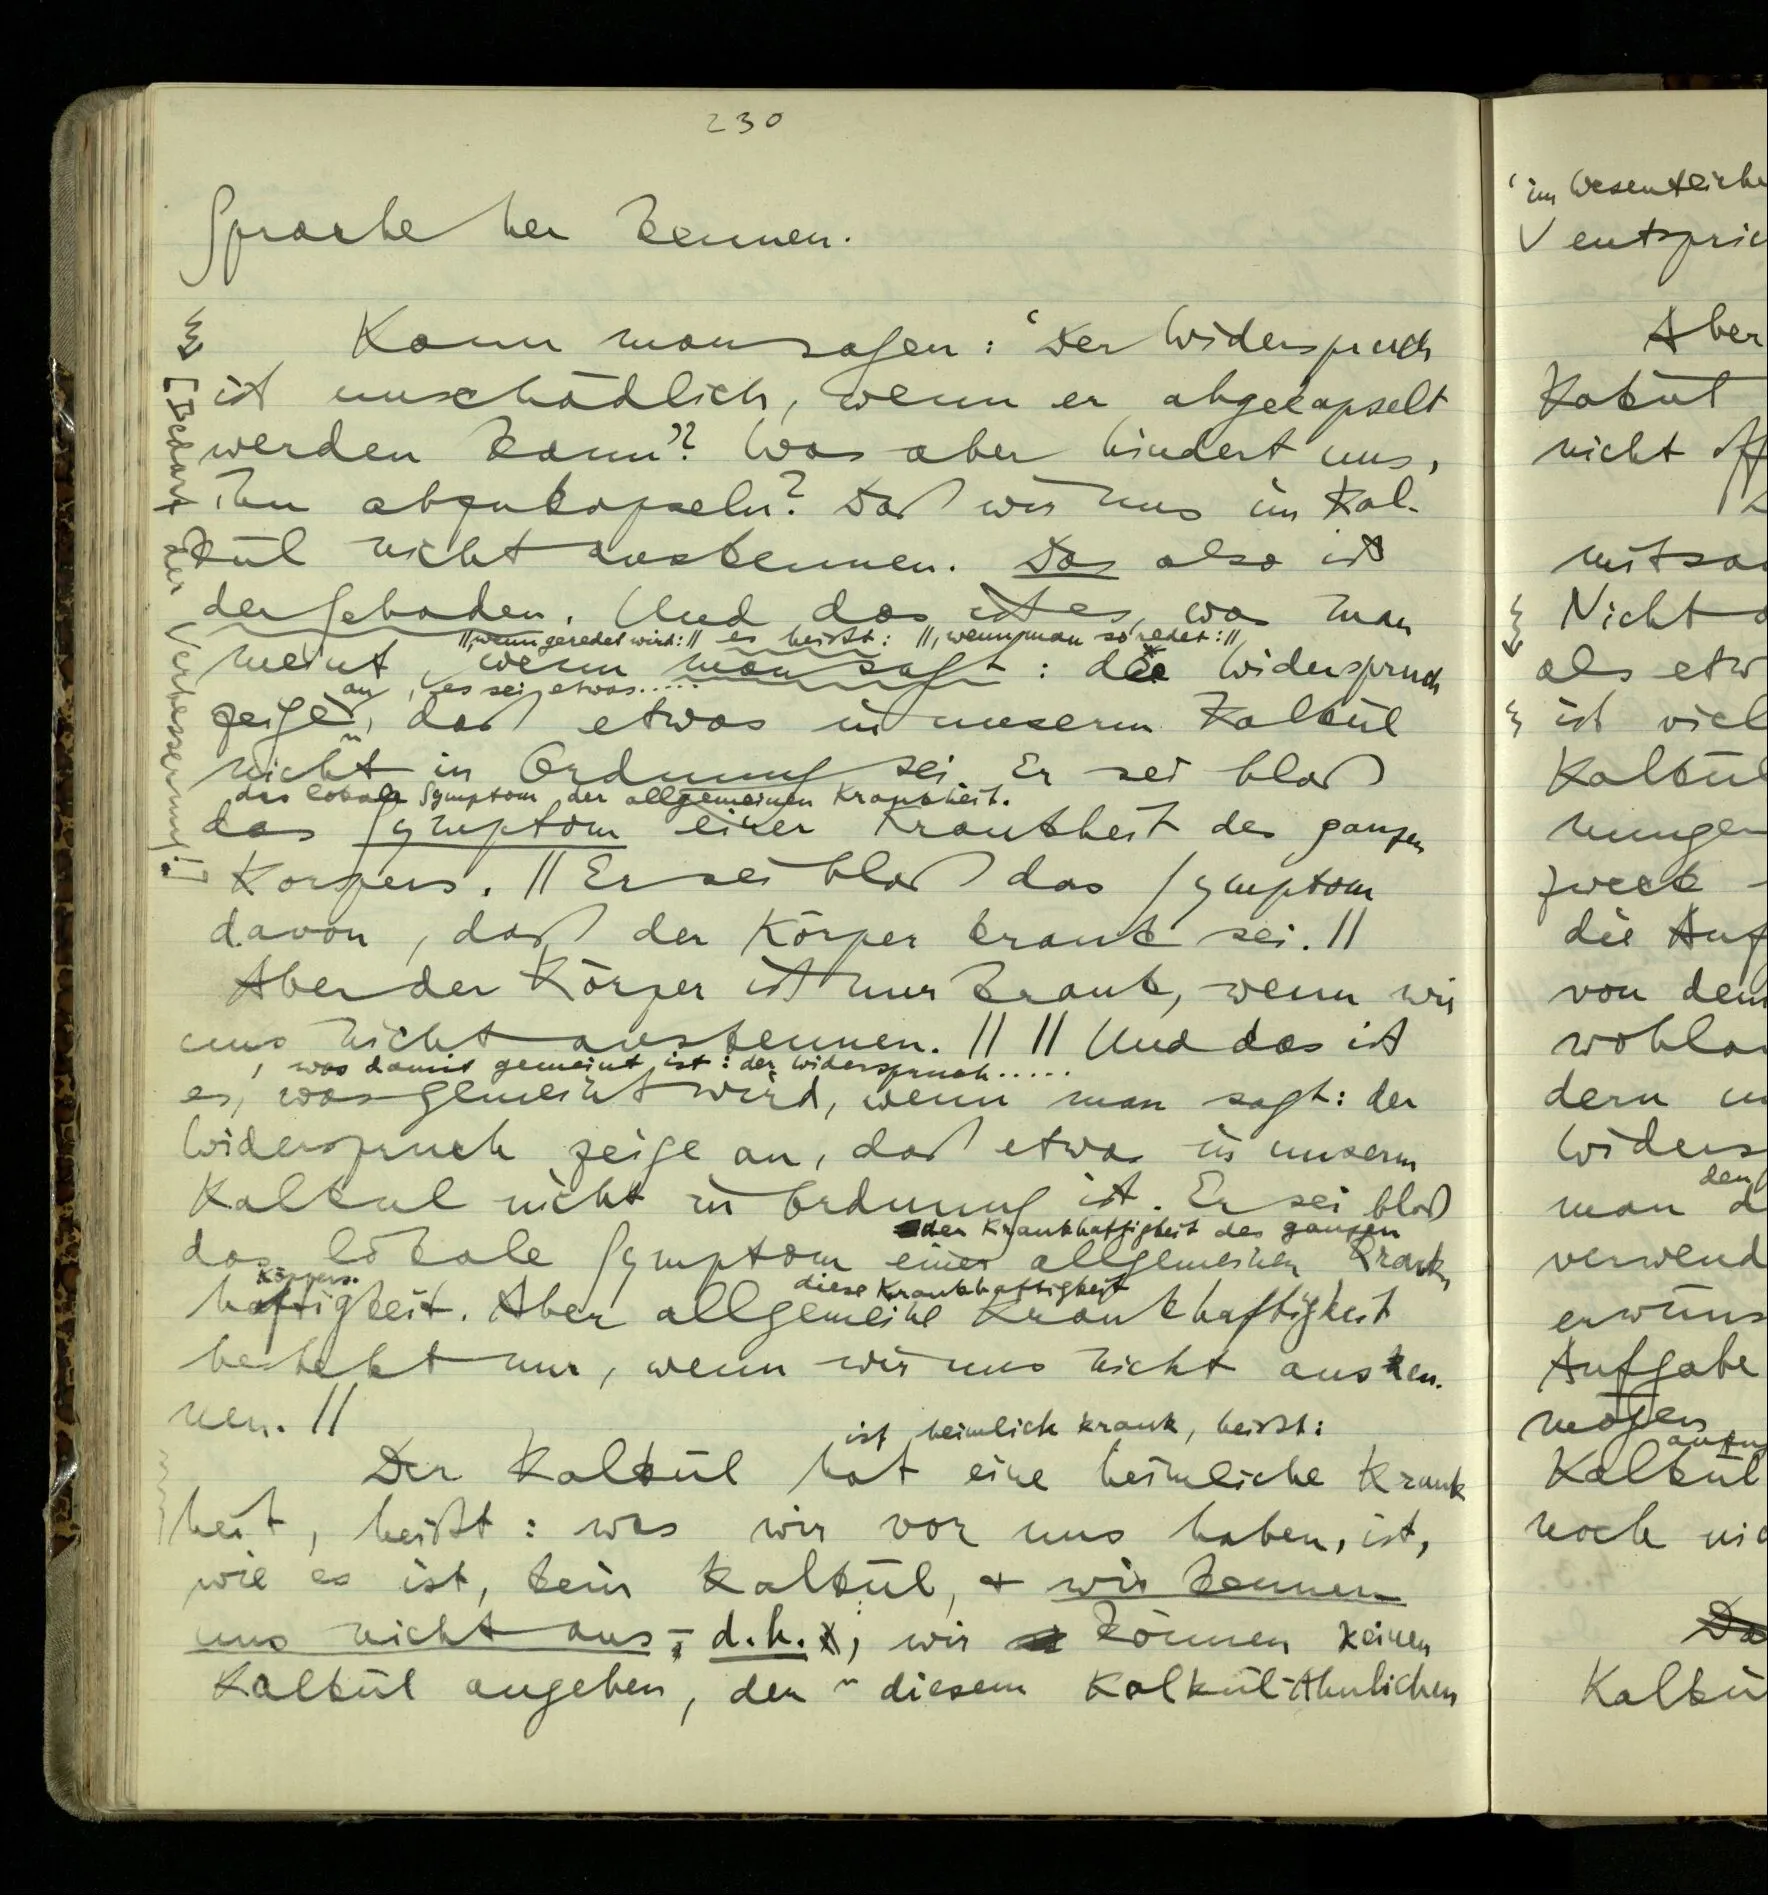 230
Sprache her kennen.
Kann man sagen: ‘Der Widerspruch
ist unschädlich, wenn er abgekapselt
werden kann’? Was aber hindert uns,
ihn abzukapseln? Daß wir uns im Kal-
kül nicht auskennen. Das also ist
der Schaden. Und das ist es, was man
||, wenn geredet wird: || es heißt: ||, wenn man so redet: ||
meint, wenn man sagt: der Widerspruch
an, es sei etwas.....
zeige, daß etwas in unserm Kalkül
nicht in Ordnung sei. Er sei bloß
das lokale Symptom der allgemeinen Krankheit.
das Symptom einer Krankheit des ganzen
Körpers. || Er sei bloß das Symptom
davon, daß der Körper krank sei. ||
Aber der Körper ist nur krank, wenn wir
uns nicht auskennen. || || Und das ist
, was damit gemeint ist: der Widerspruch.....
es, was gemeint wird, wenn man sagt: der
Widerspruch zeige an, daß etwas in unserm
Kalkul nicht in Ordnung ist. Er sei bloß
der Krankhaftigkeit des ganzen
das lokale Symptom einer allgemeinen Krank
Körpers.
haftigkeit. Aber allgemeine Krankhaftigkeit
diese Krankhaftigkeit
besteht nur, wenn wir uns nicht ausken-
nen. ||
ist heimlich krank, heißt:
Der Kalkül hat eine heimliche Krank
heit, heißt: was wir vor uns haben, ist,
wie es ist, kein Kalkül, & wir kennen
uns nicht aus – d.h., wir können keinen
Kalkül angeben, der diesem Kalkül-Ähnlichen
[Bedarf der Verbesserung!]
‘im Wesentliche
√ entspric
Aber
Kalkül
nicht
mitsa
Nicht
als etw
ist viel
Kalkül
nungen
zweck
die Auf
von dem
wohla
dern
Widers
den
man
verwend
erwüns
Aufgabe
mögen
Kalkül
noch nic
Da
Kalkü